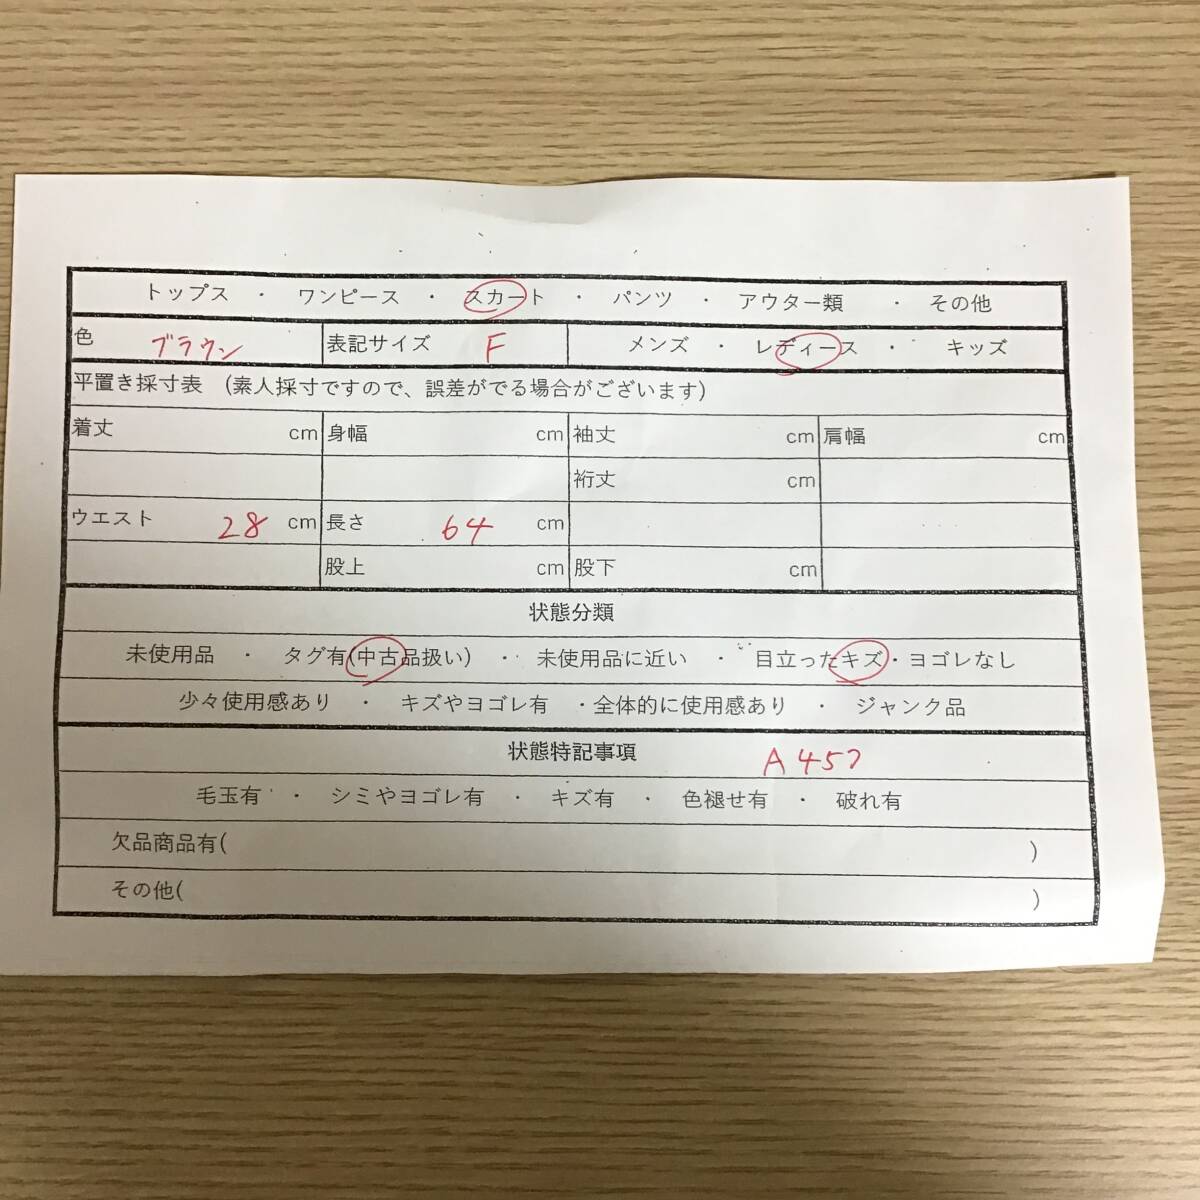 トップス ・ ワンピース ・ スカート ・ パンツ ・ アウター類 ・ その他
色 ブラウン 表記サイズ F メンズ ・ レディース ・ キッズ
平置き採寸表 (素人採寸ですので、誤差がでる場合がございます)
着丈 cm 身幅 cm 袖丈 cm 肩幅 cm
裄丈 cm
ウエスト 28 cm 長さ 64 cm
股上 cm 股下 cm
状態分類
未使用品 ・ タグ有(中古品扱い) ・ 未使用品に近い ・ 目立ったキズ・ヨゴレなし
少々使用感あり ・ キズやヨゴレ有 ・全体的に使用感あり ・ ジャンク品
状態特記事項 A457
毛玉有 ・ シミやヨゴレ有 ・ キズ有 ・ 色褪せ有 ・ 破れ有
欠品商品有( )
その他( )